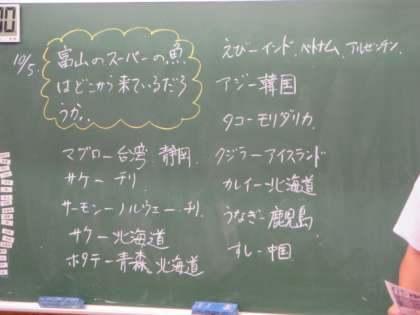 10/5.
富山のスーパーの魚
はどこから来ているだろ
うか。
マグロー台湾 静岡.
サケーチリ
サーモンーノルウェー・チリ.
サケー北海道
ホタテー青森 北海道
えびーインド、ベトナム、アルゼンチン.
アジー韓国
タコーモリタリカ
クジラーアイスランド
カレイー北海道
うなぎー鹿児島
すしー中国